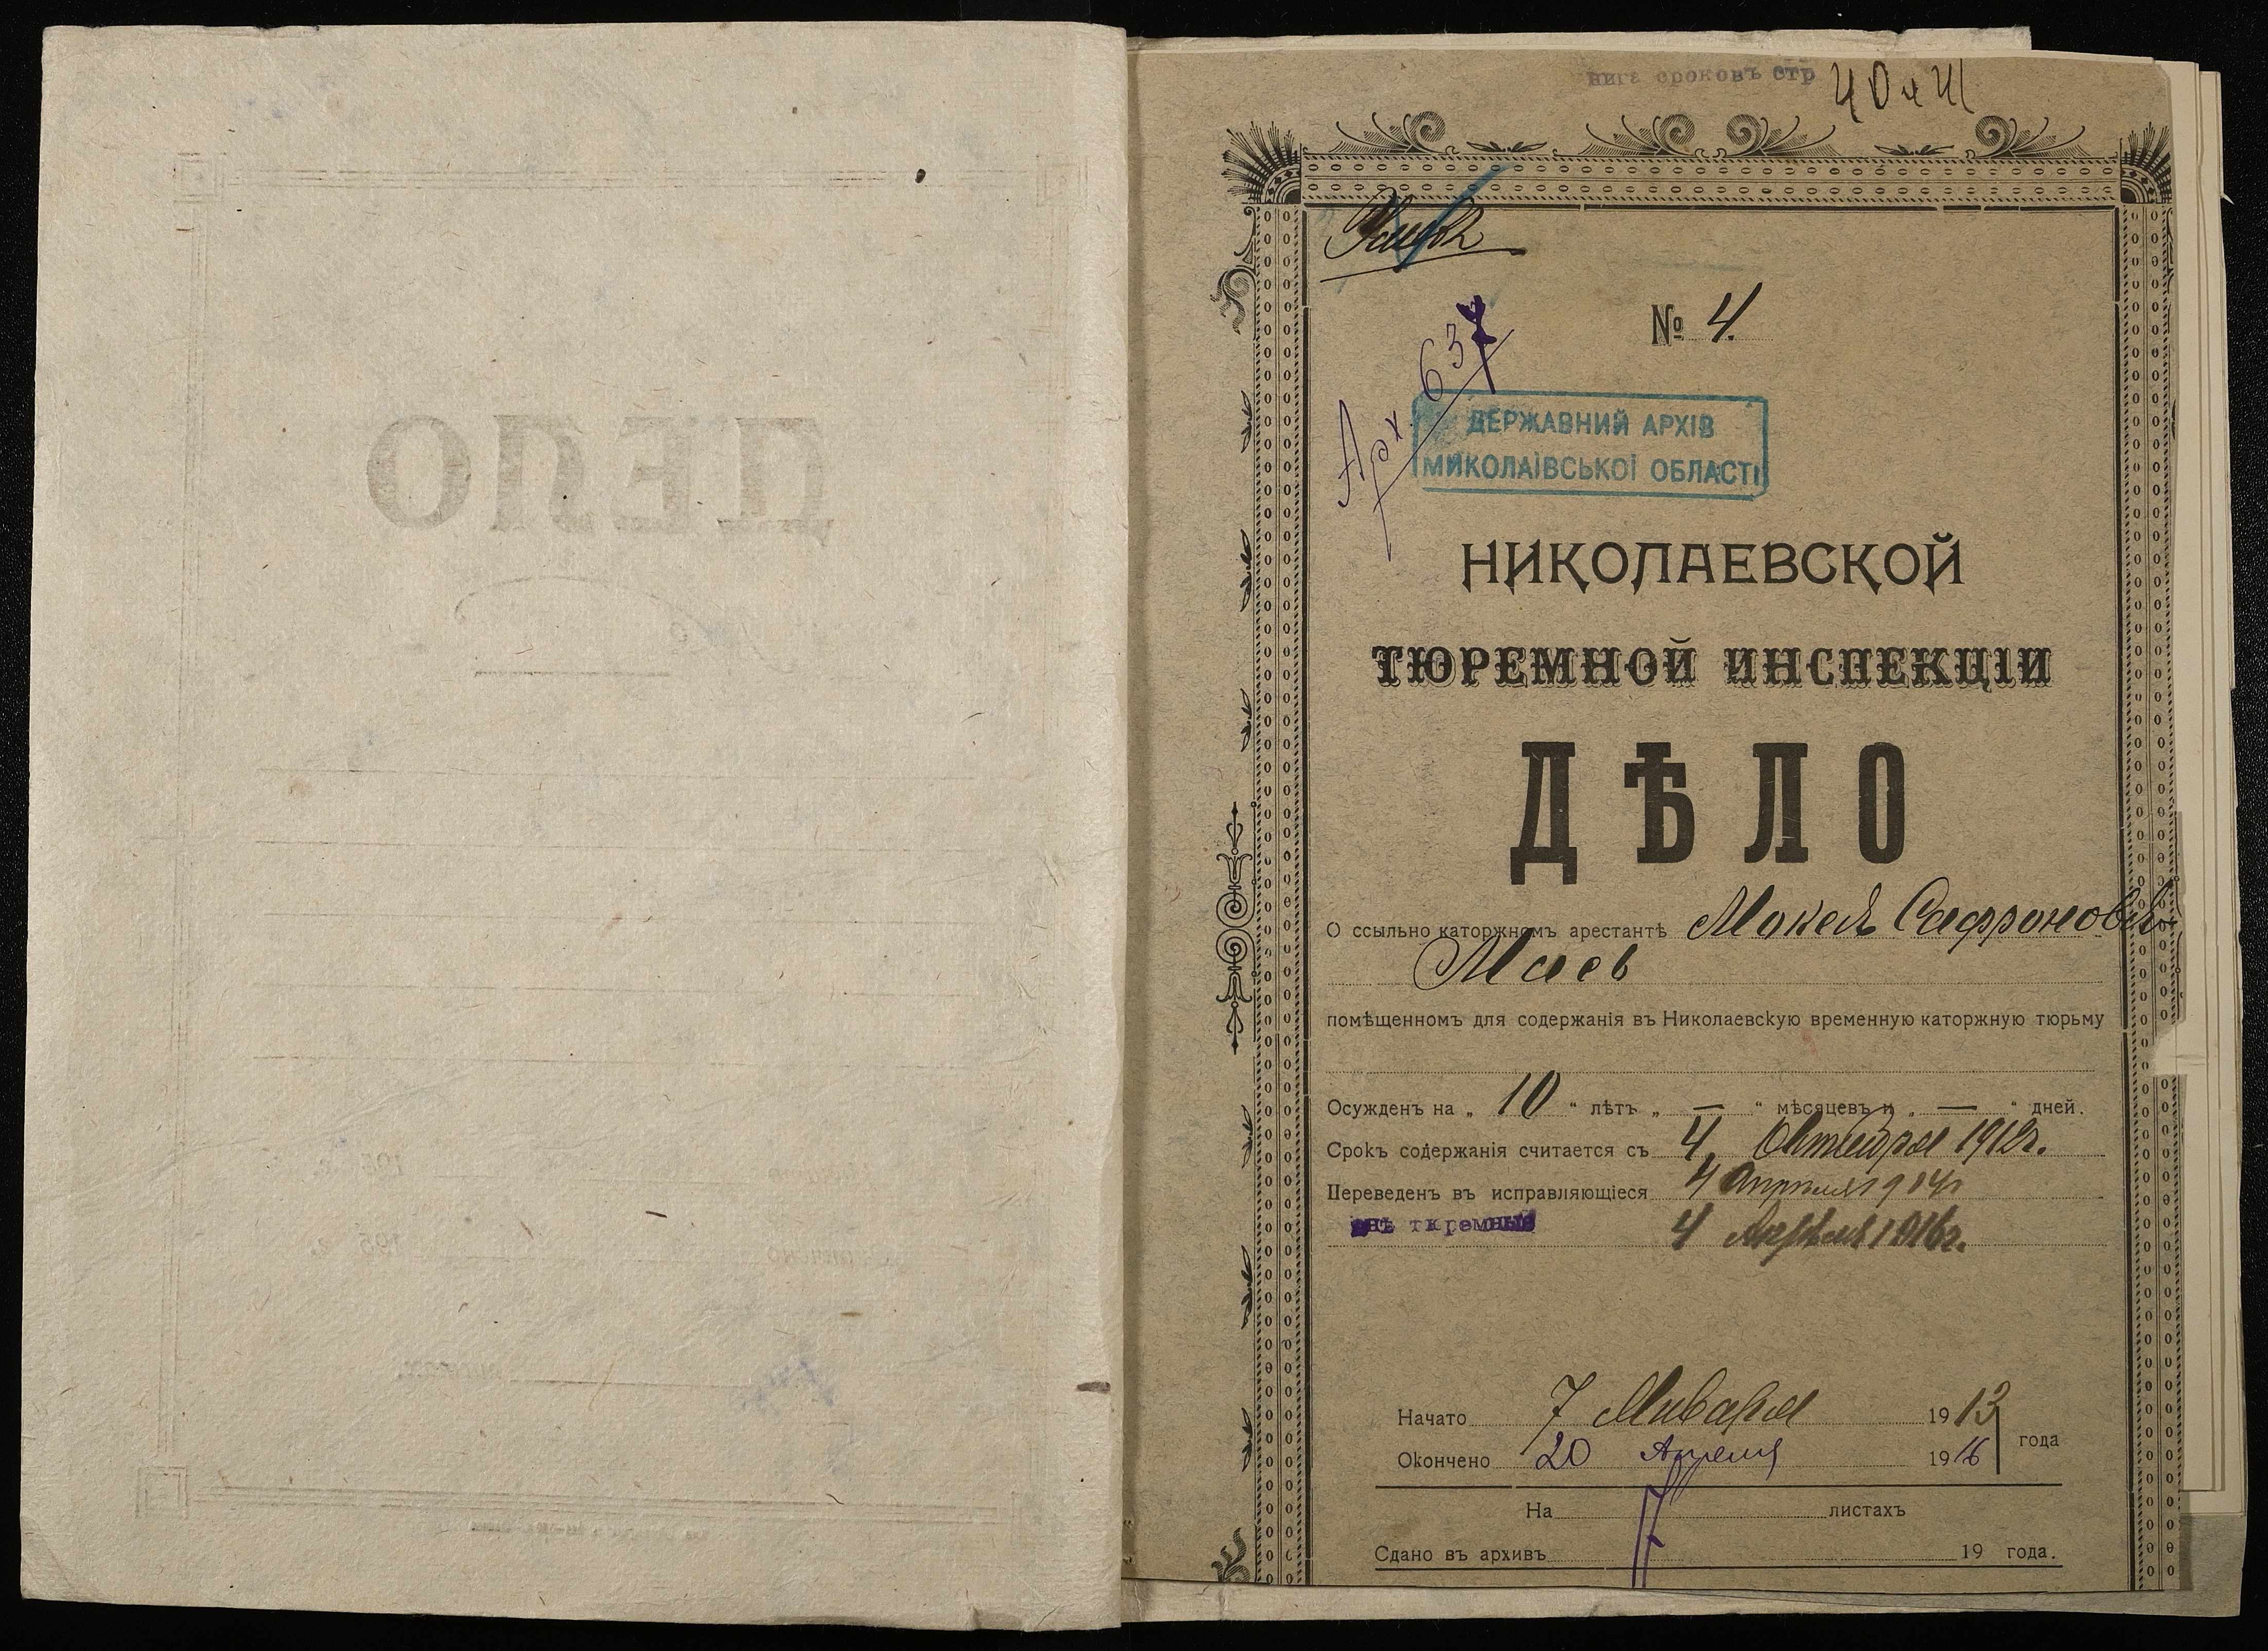 нига сроковъ стр 40 и 41
№ 4.
Арх. 637
ДЕРЖАВНИЙ АРХІВ
МИКОЛАЇВСЬКОЇ ОБЛАСТІ
НИКОЛАЕВСКОЙ
ТЮРЕМНОЙ ИНСПЕКЦІИ
ДѢЛО
О ссыльно каторжномъ арестантѣ Мокей Сафроновъ
Маев
помѣщенномъ для содержанія въ Николаевскую временную каторжную тюрьму
Осужденъ на „ 10 “ лѣтъ „ — “ мѣсяцевъ и „ — “ дней.
Срокъ содержанія считается съ 4 Октября 1912г.
Переведенъ въ исправляющіеся 4 Апрѣля 1914г
внѣ тюремные 4 Апрѣля 1916г.
Начато 7 Января 1913
года
Окончено 20 Апреля 1916
На листахъ
Сдано въ архивъ 19 года.
ДЕЛО